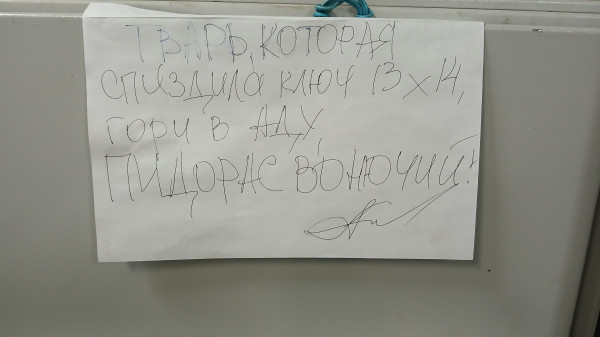 ТВАРЬ, КОТОРАЯ
СПИЗДИЛА КЛЮЧ 13х14,
ГОРИ В АДУ,
ПИДОРАС ВОНЮЧИЙ!